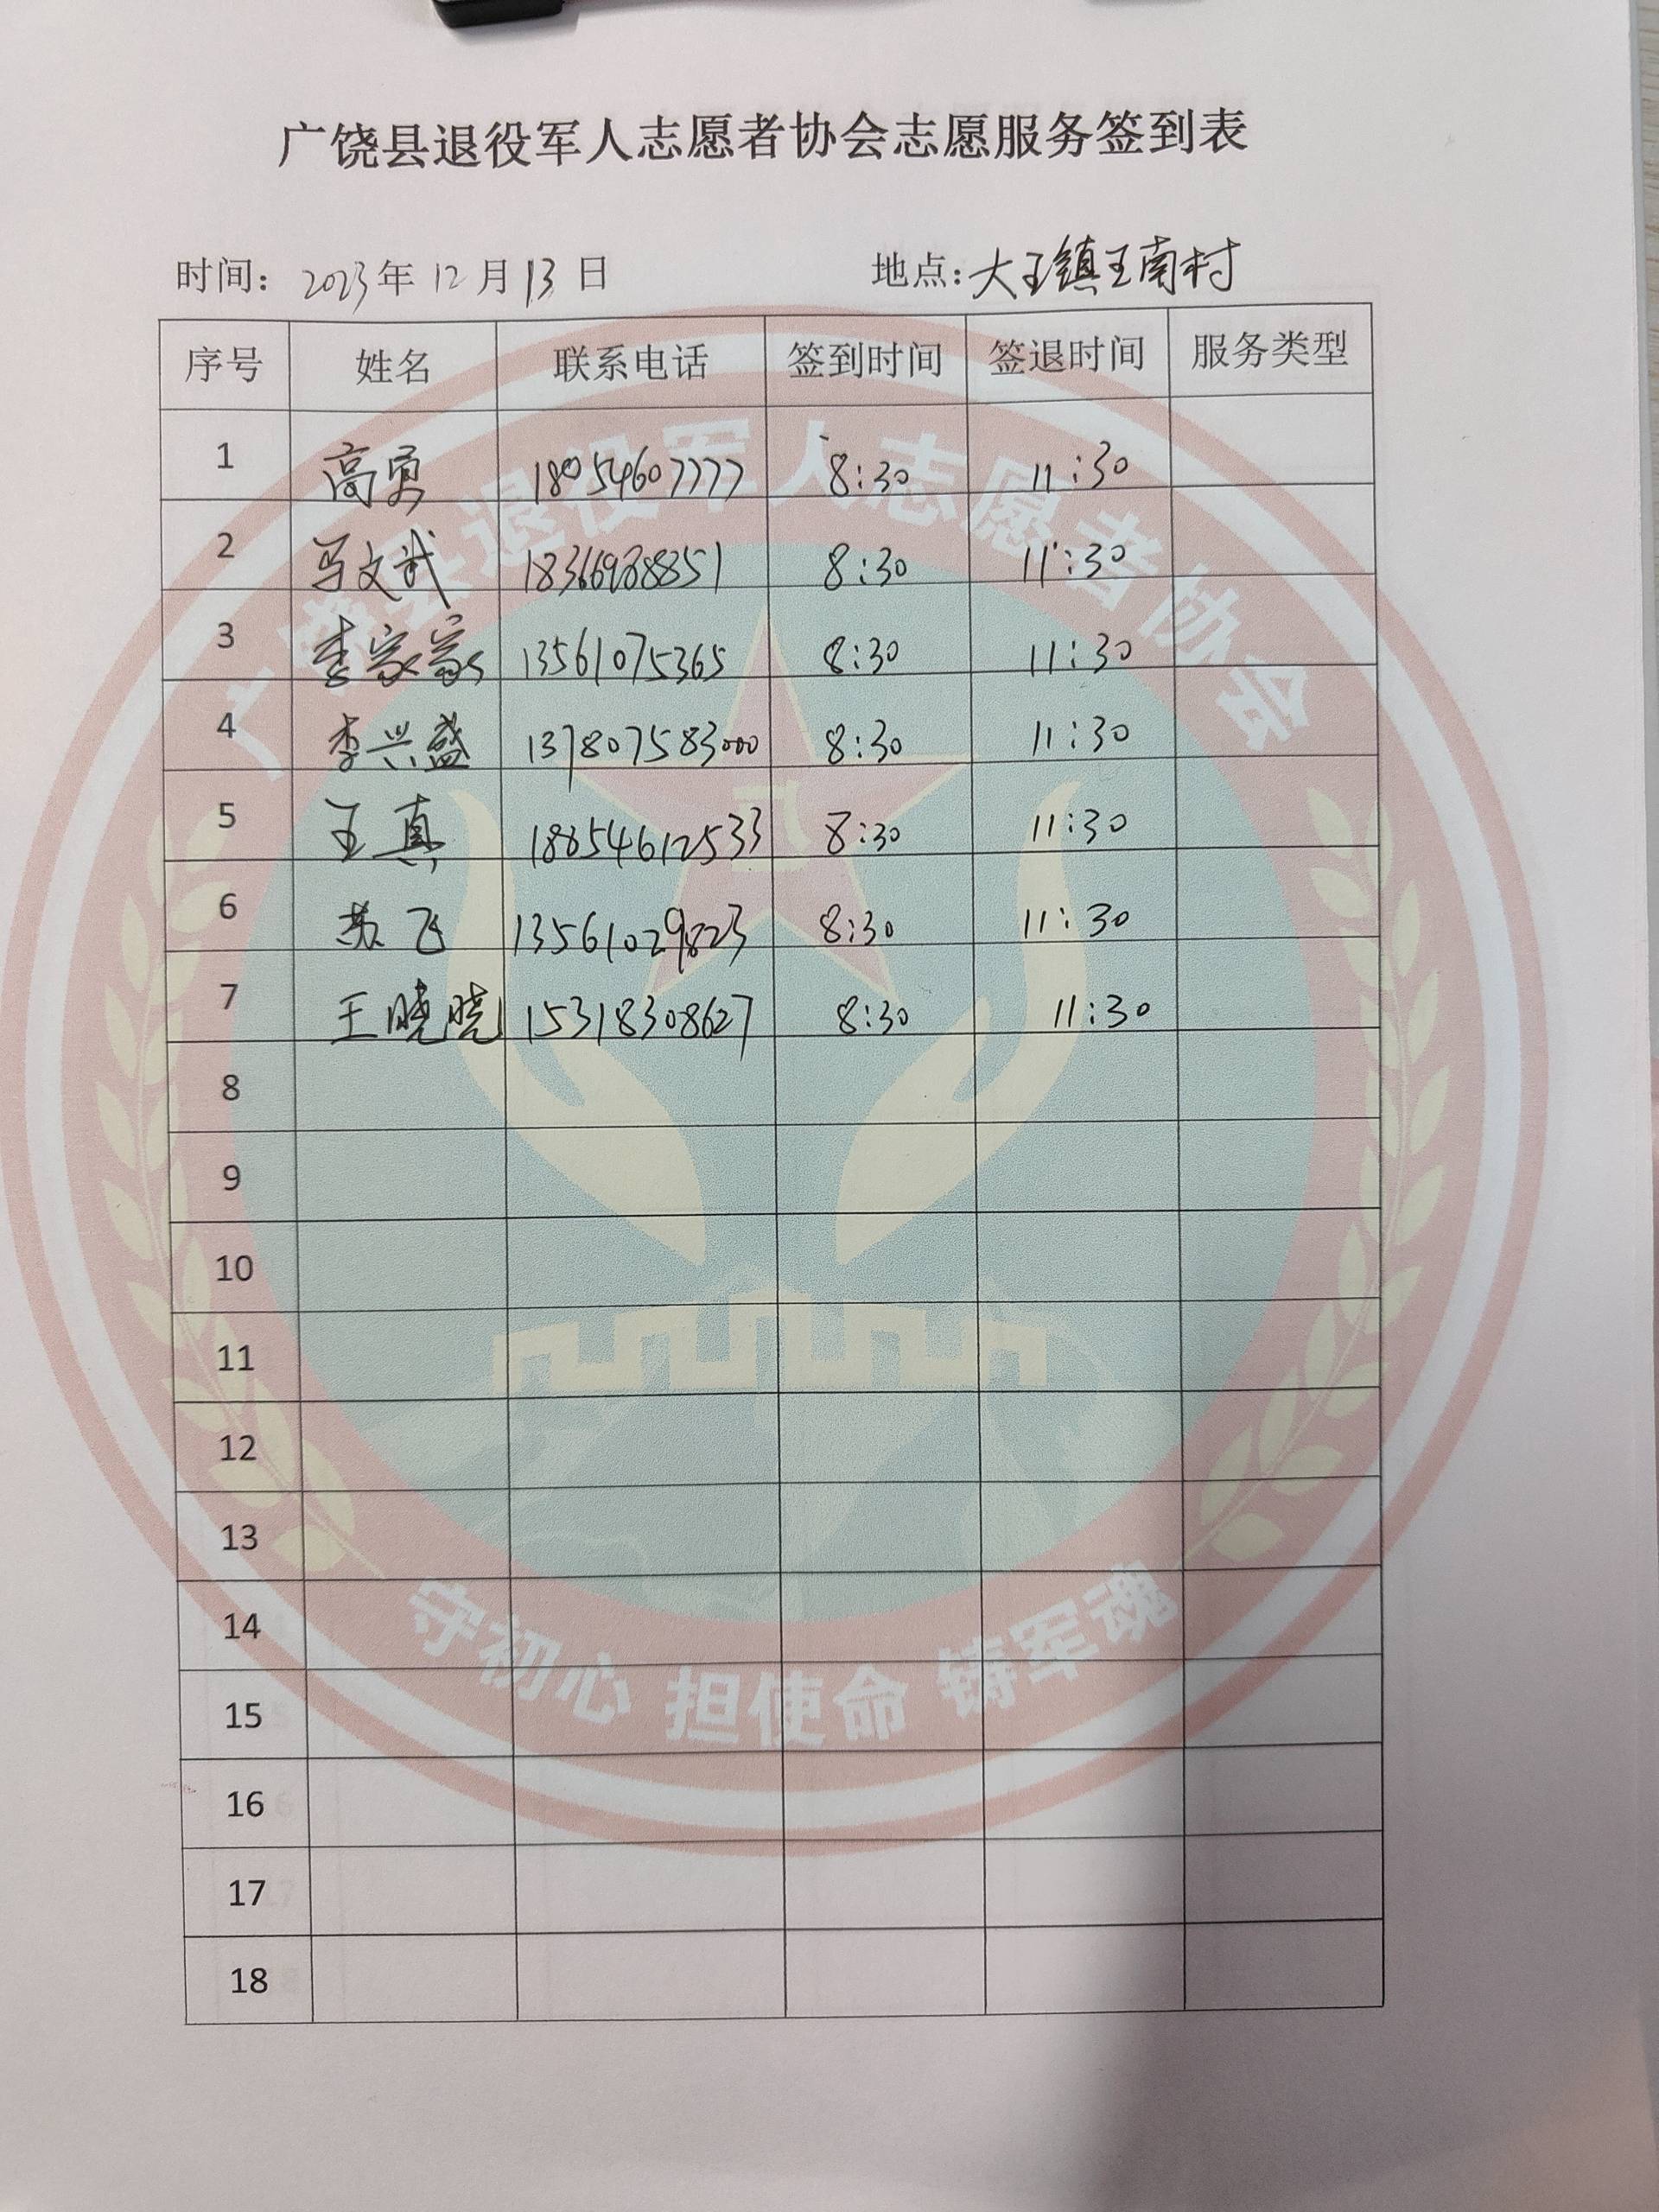 广饶县退役军人志愿者协会志愿服务签到表
时间: 2023年12月13日 地点:大王镇王南村
序号 姓名 联系电话 签到时间 签退时间 服务类型
1 高勇 18054607777 8:30 11:30
2 马文武 18366988851 8:30 11:30
3 李家家 13561075365 8:30 11:30
4 李兴盛 137807583000 8:30 11:30
5 王真 18854612533 8:30 11:30
6 苏飞 13561029823 8:30 11:30
7 王晓晓 15318308627 8:30 11:30
8
9
10
11
12
13
14
15
16
17
18
广饶县退役军人志愿者协会
守初心 担使命 铸军魂